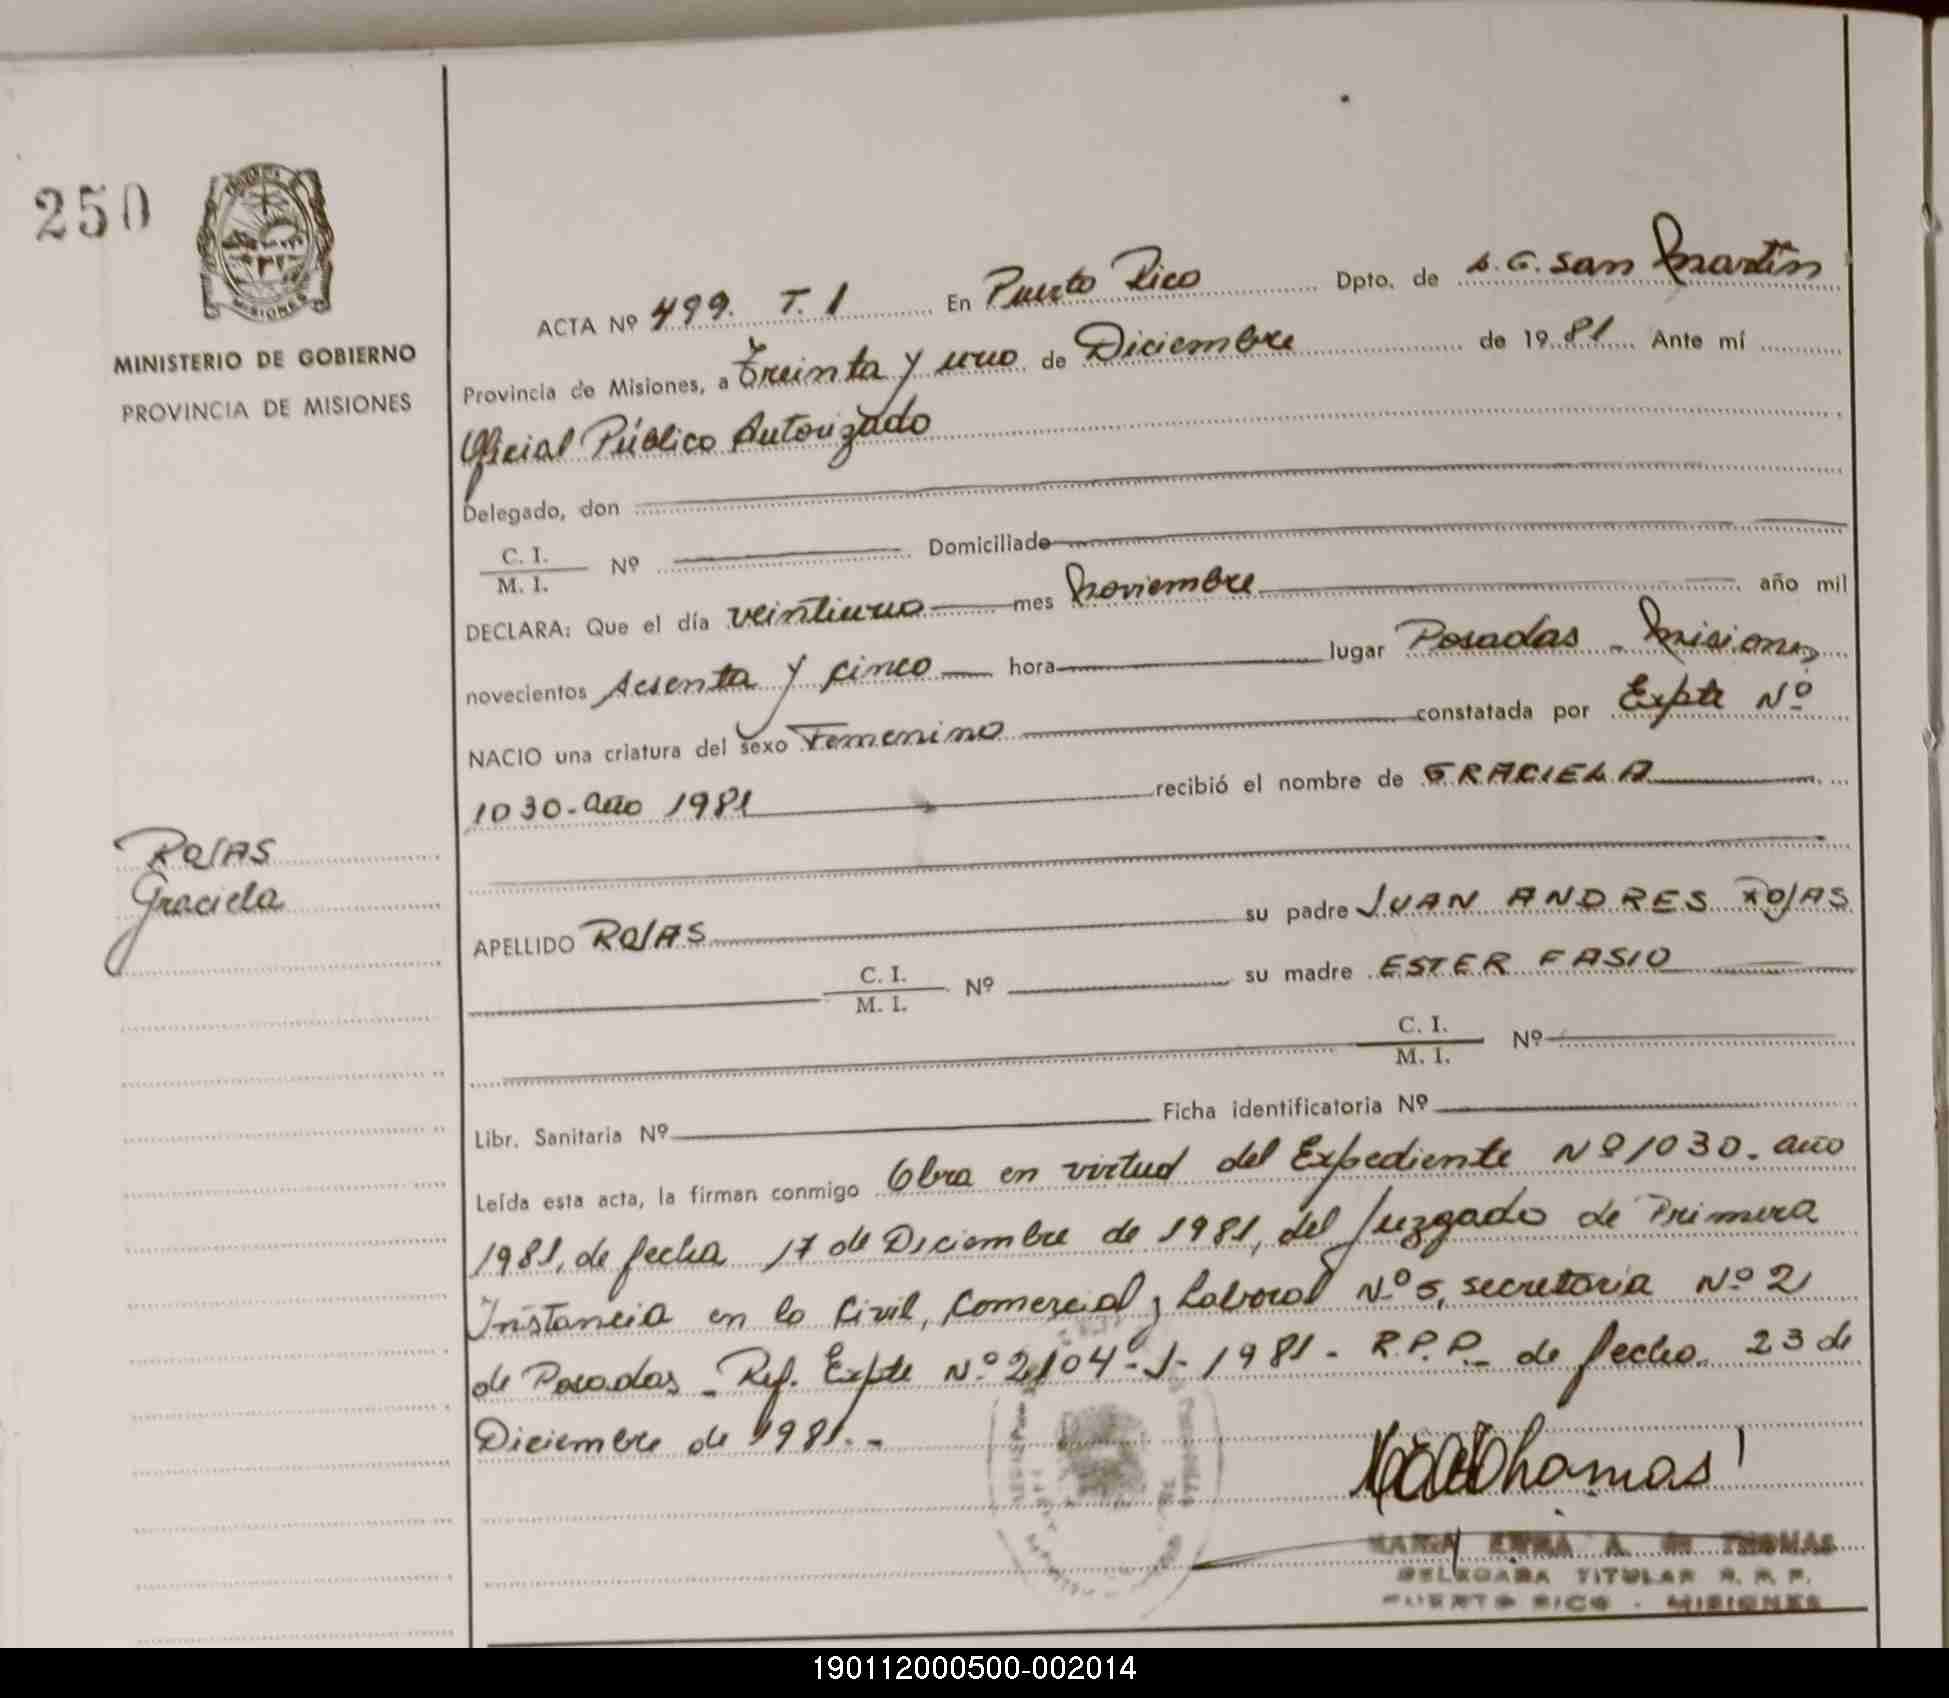 250
MISIONES
MINISTERIO DE GOBIERNO
PROVINCIA DE MISIONES
ACTA Nº 499. T. 1 En Puerto Rico Dpto. de L. G. San Martín
Provincia de Misiones, a Treinta y uno de Diciembre de 1981 Ante mí
Oficial Público Autorizado
Delegado, don
C. I.
M. I. Nº Domiciliado
DECLARA: Que el día veintiuno mes Noviembre año mil
novecientos sesenta y cinco hora lugar Posadas - Misiones
NACIO una criatura del sexo Femenino constatada por Expte Nº
1030-año 1981 recibió el nombre de GRACIELA
ROJAS
Graciela
APELLIDO ROJAS su padre JUAN ANDRES ROJAS
C. I.
M. I. Nº su madre ESTER FASIO
C. I.
M. I. Nº
Libr. Sanitaria Nº Ficha identificatoria Nº
Leída esta acta, la firman conmigo Obra en virtud del Expediente Nº 1030. año
1981, de fecha 17 de Diciembre de 1981, del Juzgado de Primera
Instancia en lo Civil, Comercial y Laboral Nº 5, secretaria Nº 2
de Posadas - Ref. Expte Nº 2104-J-1981 - R.P.P. de fecha 23 de
Diciembre de 1981.-
Thomas
MARIA A. DE THOMAS
DELEGADA TITULAR R. P. P.
PUERTO RICO - MISIONES
190112000500-002014